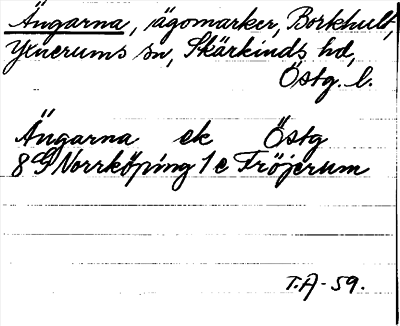 Ängarna, ägomarker, Borkhult,
Yxnerums sn, Skärkinds hd,
Östg. l.
Ängarna ek Östg
8G Norrköping 1c Fröjerum
T.A-59.